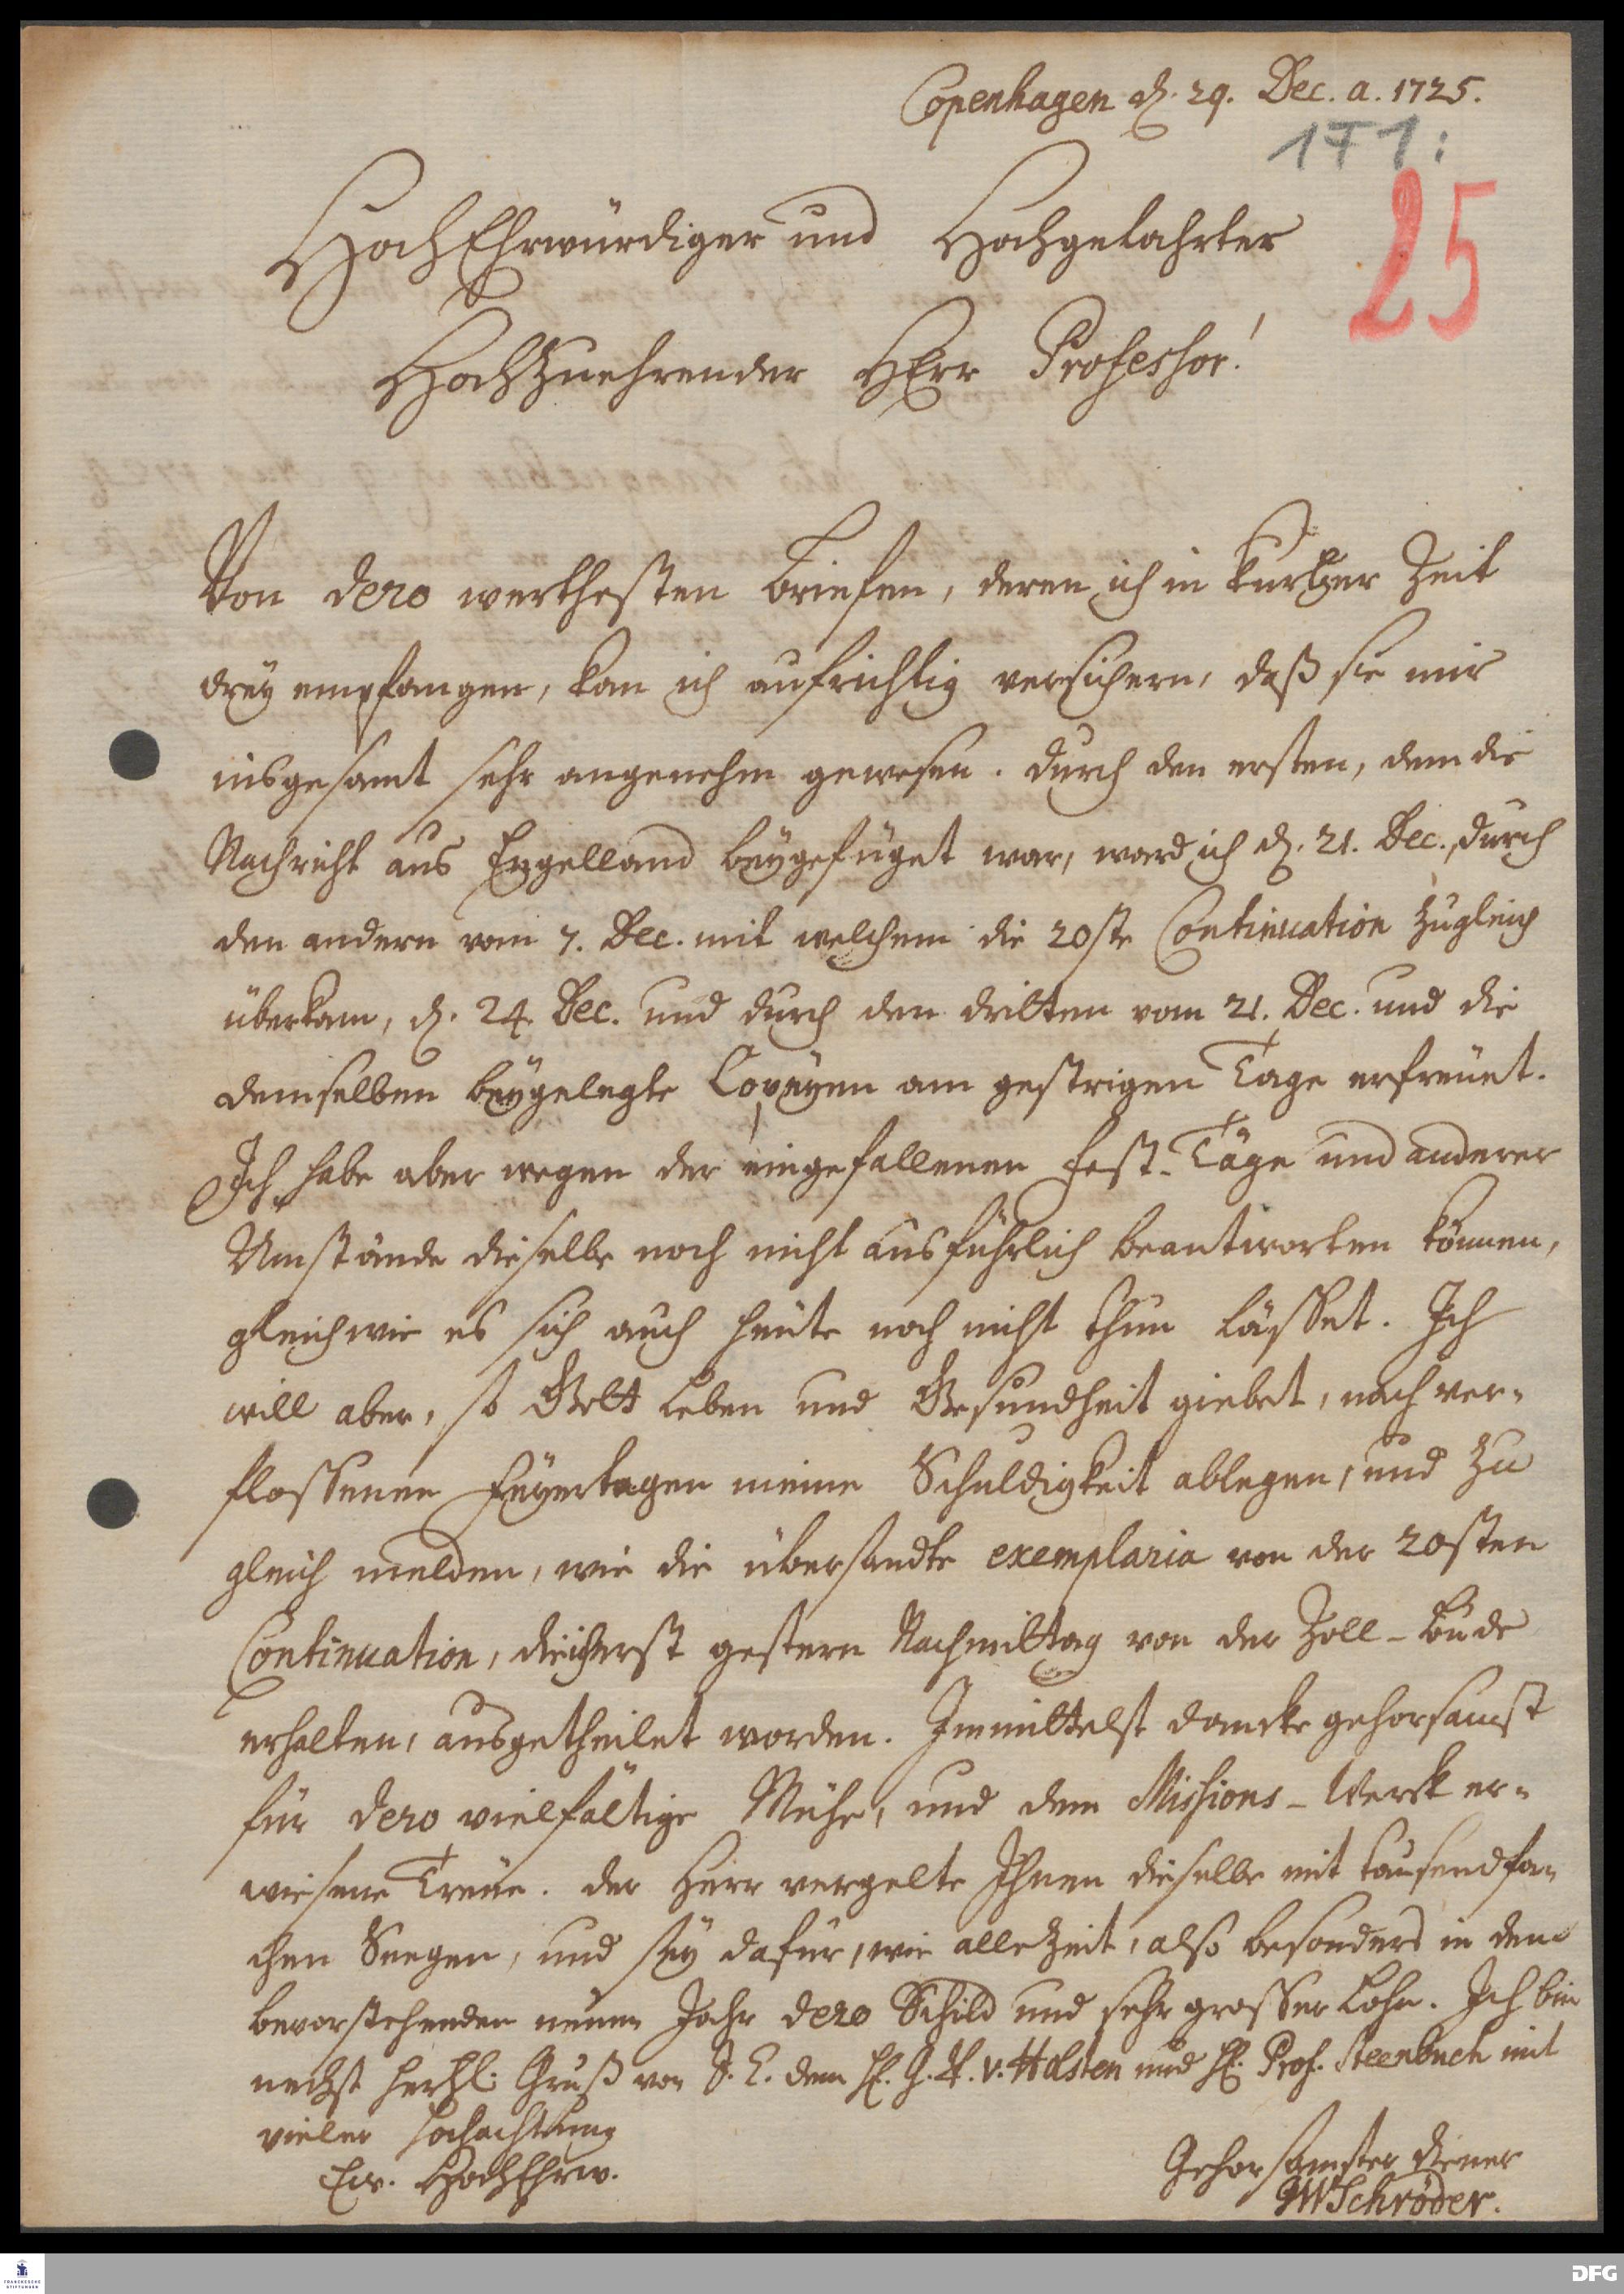 Copenhagen d. 29. Dec. a. 1725.
171:
25
HochEhrwürdiger und Hochgelahrter
Hochzuehrender HErr Professor!
Von dero werthesten Briefen, deren ich in kurtzer Zeit
drey empfangen, kan ich aufrichtig versichern, daß sie mir
insgesamt sehr angenehm gewesen. Durch den ersten, dem die
Nachricht aus Engelland beygefüget war, ward ich d. 21. Dec., durch
den andern vom 7. Dec. mit welchem die 20ste Continuation zugleich
überkam, d. 24. Dec. und durch den dritten vom 21. Dec. und die
demselben beygelegte Copeyen am gestrigen Tage erfreüet.
Ich habe aber wegen der eingefallenen Fest-Täge und anderer
Umstände dieselbe noch nicht ausführlich beantworten können,
gleichwie es sich auch heüte noch nicht thun lässet. Ich
will aber, so Gott Leben und Gesundheit giebet, nach ver-
flossenen Feyertagen meine Schuldigkeit ablegen, und zu
gleich melden, wie die übersandte exemplaria von der 20sten
Continuation, die ich erst gestern Nachmittag von der Zoll-Bude
erhalten, ausgetheilet worden. Immittelst dancke gehorsamst
für dero vielfältige Mühe, und dem Missions-Werck er-
wiesene Treüe. Der Herr vergelte Ihnen dieselbe mit tausendfa-
chen Seegen, und sey dafür, wie allezeit, also besonders in dem
bevorstehenden neuen Jahr dero Schild und sehr grosser Lohn. Ich bin
nechst hertzl. Gruß von S. E. dem H. G. R. v. Holsten und H. Prof. Steenbuch mit
vieler Hochachtung
Ew. HochEhrw.
Gehorsamster Diener
JWSchröder.
FRANCKESCHE STIFTUNGEN
DFG